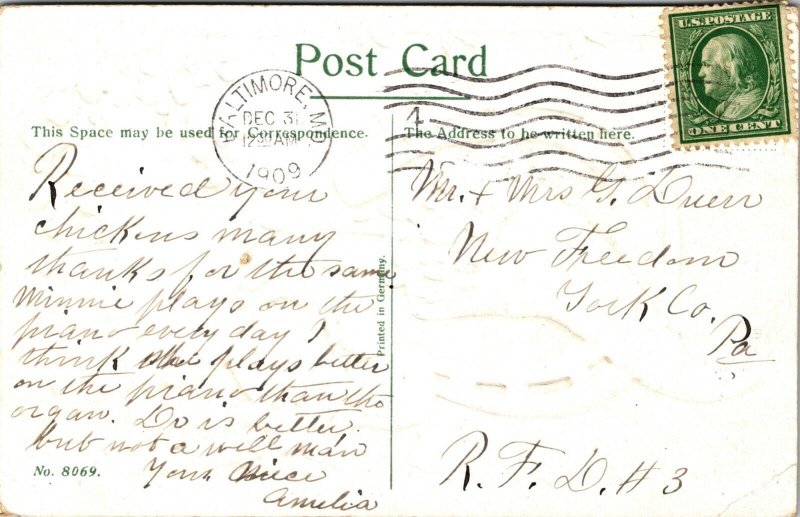 Post Card
U.S. POSTAGE
ONE CENT
BALTIMORE, MD.
DEC 31
12 30 AM
1909
1
This Space may be used for Correspondence.
The Address to be written here.
Received your
chickens many
thanks for the same
Minnie plays on the
piano every day I
think she plays better
on the piano than the
organ. Do is better
but not a well man
Your Niece
Amelia
Printed in Germany.
No. 8069.
Mr. + Mrs G. Duerr
New Freedom
York Co.
Pa
R. F. D. # 3